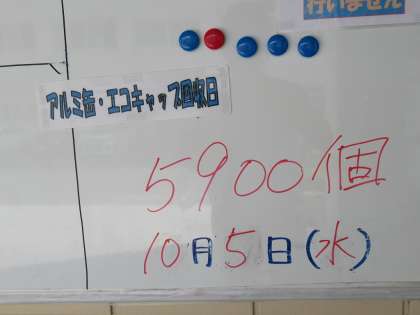 行いません
アルミ缶・エコキャップ回収日
5900個
10月5日(水)